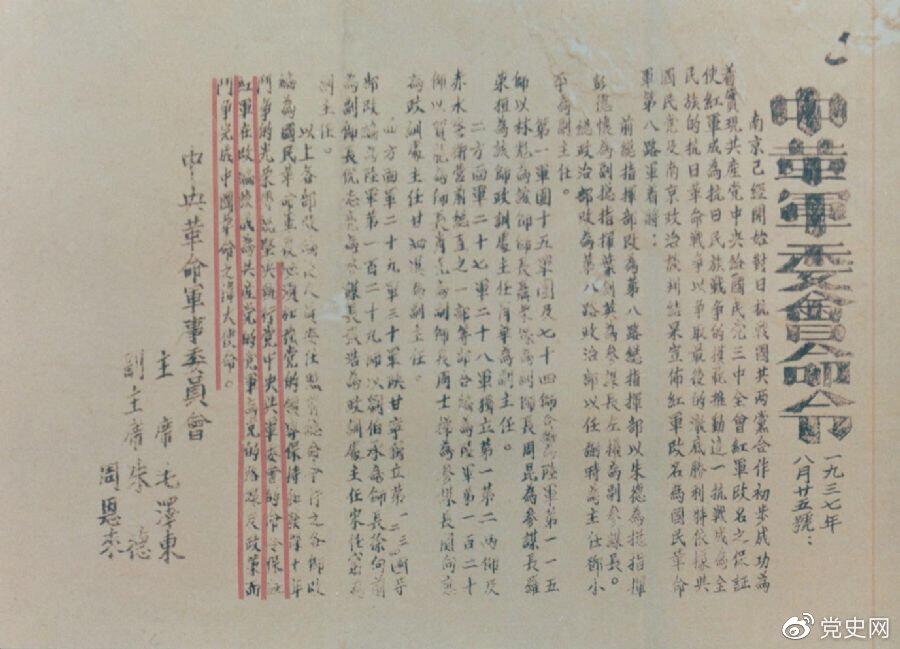 中華軍委會命令
一九三七年
八月廿五號：
南京已經開始對日抗戰國共兩黨合作初步成功為
着實現共產党中央給國民党三中全會紅軍改名之保証
使紅軍成為抗日民族戰争的模範推動這一抗戰成為全
民族的抗日革命戰争以争取最後的澈底勝利特依據共
國民党及南京政治談判結果宣佈紅軍改名為國民革命
軍第八路軍着将：
前總指揮部改為第八路總指揮部以朱德為總指揮
彭德懷為副總指揮葉劍英為參謀長左權為副參謀長。
總政治部改為第八路政治部以任弼時為主任鄧小
平為副主任。
第一軍團十五軍團及七十四師合編為陸軍第一一五
師以林彪為該師師長聶榮臻為副師長周昆為參謀長羅
榮桓為該師政訓處主任肖華為副主任。
二方面軍二十七軍二十八軍獨立第一第二兩師及
赤水警衛營前總直之一部等部合編為陸軍第一百二十
師以賀龍為師長肖克為副師長周士弟為參謀長関向應
為政訓處主任甘泗淇為副主任。
四方面軍二十九軍三十軍陝甘寧獨立第一二三四等
部改編為陸軍第一百二十九師以劉伯承為師長徐向前
為副師長倪志亮為參謀長張浩為政訓處主任宋任窮為
副主任。
以上各部改編後人員委任照前總命令行之各部改
編為國民革命軍後必須加強党的領導保持和發揮十年
鬥争的光榮傳統堅決執行党中央與軍委會的命令保证
紅軍在改編後成為共產党的党軍為党的路線及政策而
鬥争完成中國革命之偉大使命。
中央革命軍事委員會
主席毛澤東
副主席朱德
周恩来
党史网